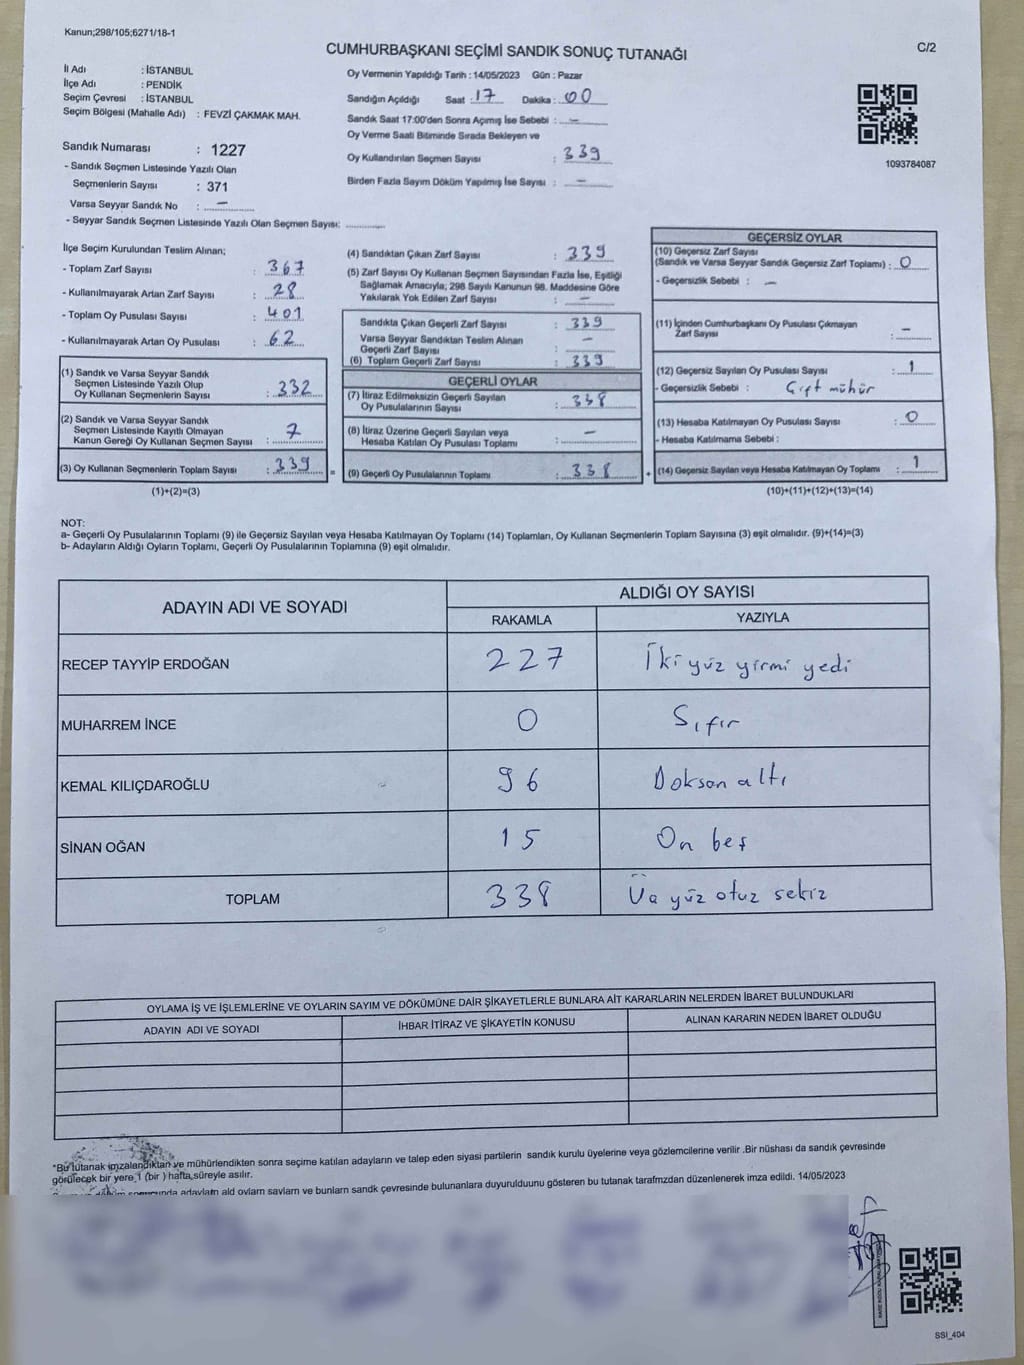 Kanun;298/105;6271/18-1
CUMHURBAŞKANI SEÇİMİ SANDIK SONUÇ TUTANAĞI
C/2
İl Adı : İSTANBUL
İlçe Adı : PENDİK
Seçim Çevresi : İSTANBUL
Seçim Bölgesi (Mahalle Adı) : FEVZİ ÇAKMAK MAH.
Sandık Numarası : 1227
- Sandık Seçmen Listesinde Yazılı Olan
Seçmenlerin Sayısı : 371
Varsa Seyyar Sandık No : -
- Seyyar Sandık Seçmen Listesinde Yazılı Olan Seçmen Sayısı:
Oy Vermenin Yapıldığı Tarih : 14/05/2023 Gün : Pazar
Sandığın Açıldığı Saat : 17 Dakika : 00
Sandık Saat 17:00'den Sonra Açmış İse Sebebi : -
Oy Verme Saati Bitiminde Sırada Bekleyen ve
Oy Kullandırılan Seçmen Sayısı : 339
Birden Fazla Sayım Döküm Yapılmış İse Sayısı : -
1093784087
İlçe Seçim Kurulundan Teslim Alınan;
- Toplam Zarf Sayısı : 367
- Kullanılmayarak Artan Zarf Sayısı : 28
- Toplam Oy Pusulası Sayısı : 401
- Kullanılmayarak Artan Oy Pusulası : 62
(1) Sandık ve Varsa Seyyar Sandık
Seçmen Listesinde Yazılı Olup
Oy Kullanan Seçmenlerin Sayısı : 332
(2) Sandık ve Varsa Seyyar Sandık
Seçmen Listesinde Kayıtlı Olmayan
Kanun Gereği Oy Kullanan Seçmen Sayısı : 7
(3) Oy Kullanan Seçmenlerin Toplam Sayısı : 339
(1)+(2)=(3)
=
(4) Sandıktan Çıkan Zarf Sayısı : 339
(5) Zarf Sayısı Oy Kullanan Seçmen Sayısından Fazla İse, Eşitliği
Sağlamak Amacıyla; 298 Sayılı Kanunun 98. Maddesine Göre
Yakılarak Yok Edilen Zarf Sayısı : -
Sandıkta Çıkan Geçerli Zarf Sayısı : 339
Varsa Seyyar Sandıktan Teslim Alınan
Geçerli Zarf Sayısı : -
(6) Toplam Geçerli Zarf Sayısı : 339
GEÇERLİ OYLAR
(7) İtiraz Edilmeksizin Geçerli Sayılan
Oy Pusulalarının Sayısı : 338
(8) İtiraz Üzerine Geçerli Sayılan veya
Hesaba Katılan Oy Pusulası Toplamı : -
(9) Geçerli Oy Pusulalarının Toplamı : 338
+
GEÇERSİZ OYLAR
(10) Geçersiz Zarf Sayısı
(Sandık ve Varsa Seyyar Sandık Geçersiz Zarf Toplamı) : 0
- Geçersizlik Sebebi : -
(11) İçinden Cumhurbaşkanı Oy Pusulası Çıkmayan
Zarf Sayısı : -
(12) Geçersiz Sayılan Oy Pusulası Sayısı : 1
- Geçersizlik Sebebi : Çift mühür
(13) Hesaba Katılmayan Oy Pusulası Sayısı : 0
- Hesaba Katılmama Sebebi :
(14) Geçersiz Sayılan veya Hesaba Katılmayan Oy Toplamı : 1
(10)+(11)+(12)+(13)=(14)
NOT:
a- Geçerli Oy Pusulalarının Toplamı (9) ile Geçersiz Sayılan veya Hesaba Katılmayan Oy Toplamı (14) Toplamları, Oy Kullanan Seçmenlerin Toplam Sayısına (3) eşit olmalıdır. (9)+(14)=(3)
b- Adayların Aldığı Oyların Toplamı, Geçerli Oy Pusulalarının Toplamına (9) eşit olmalıdır.
ADAYIN ADI VE SOYADI
ALDIĞI OY SAYISI
RAKAMLA YAZIYLA
RECEP TAYYİP ERDOĞAN 227 İki yüz yirmi yedi
MUHARREM İNCE 0 Sıfır
KEMAL KILIÇDAROĞLU 96 Doksan altı
SİNAN OĞAN 15 On beş
TOPLAM 338 Üç yüz otuz sekiz
OYLAMA İŞ VE İŞLEMLERİNE VE OYLARIN SAYIM VE DÖKÜMÜNE DAİR ŞİKAYETLERLE BUNLARA AİT KARARLARIN NELERDEN İBARET BULUNDUKLARI
ADAYIN ADI VE SOYADI İHBAR İTİRAZ VE ŞİKAYETİN KONUSU ALINAN KARARIN NEDEN İBARET OLDUĞU
*Bu tutanak imzalandıktan ve mühürlendikten sonra seçime katılan adayların ve talep eden siyasi partilerin sandık kurulu üyelerine veya gözlemcilerine verilir .Bir nüshası da sandık çevresinde
görülecek bir yere 1 (bir ) hafta süreyle asılır.
adayların ald oyların sayları ve bunların sandk çevresinde bulunanlara duyurulduunu gösteren bu tutanak tarafmzdan düzenlenerek imza edildi. 14/05/2023
SSI_404